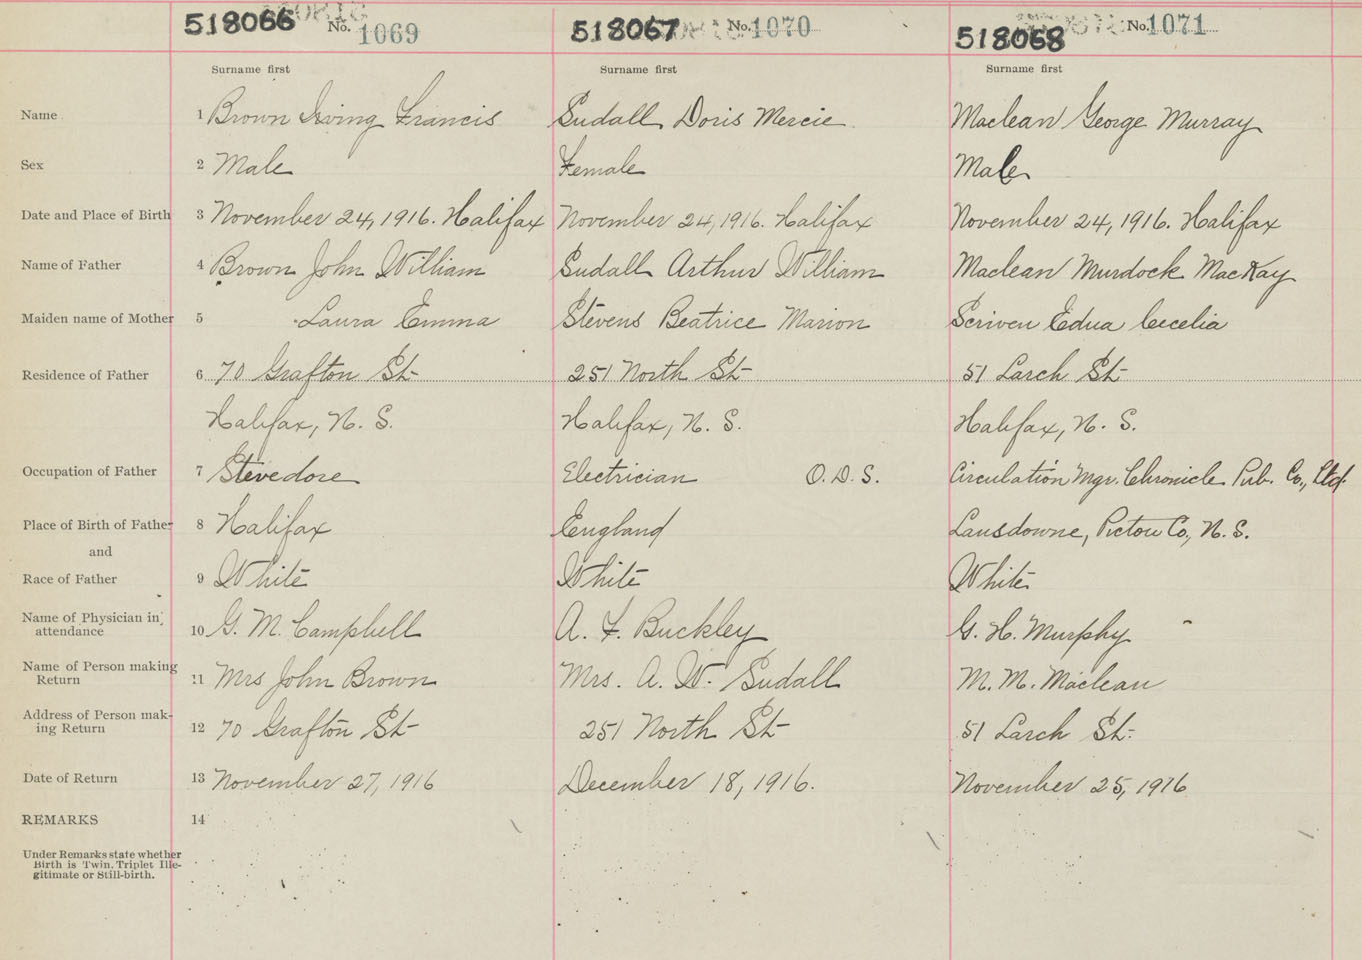 518066 No. 1069 518067 No. 1070 518068 No. 1071
Surname first Surname first Surname first
Name 1 Brown Irving Francis Sudall Doris Mercie Maclean George Murray
Sex 2 Male Female Male
Date and Place of Birth 3 November 24, 1916. Halifax November 24, 1916. Halifax November 24, 1916. Halifax
Name of Father 4 Brown John William Sudall Arthur William Maclean Murdock MacKay
Maiden name of Mother 5 Laura Emma Stevens Beatrice Marion Scriven Edna Cecelia
Residence of Father 6 70 Grafton St 251 North St 51 Larch St
Halifax, N. S. Halifax, N. S. Halifax, N. S.
Occupation of Father 7 Stevedore Electrician O. D. S. Circulation Mgr. Chronicle Pub. Co., Ltd.
Place of Birth of Father 8 Halifax England Lansdowne, Pictou Co., N. S.
and
Race of Father 9 White White White
Name of Physician in attendance 10 G. M. Campbell A. F. Buckley G. H. Murphy
Name of Person making Return 11 Mrs John Brown Mrs. A. W. Sudall M. M. Maclean
Address of Person mak-ing Return 12 70 Grafton St 251 North St 51 Larch St.
Date of Return 13 November 27, 1916 December 18, 1916. November 25, 1916
REMARKS 14
Under Remarks state whether
Birth is Twin. Triplet Ille-
gitimate or Still-birth.